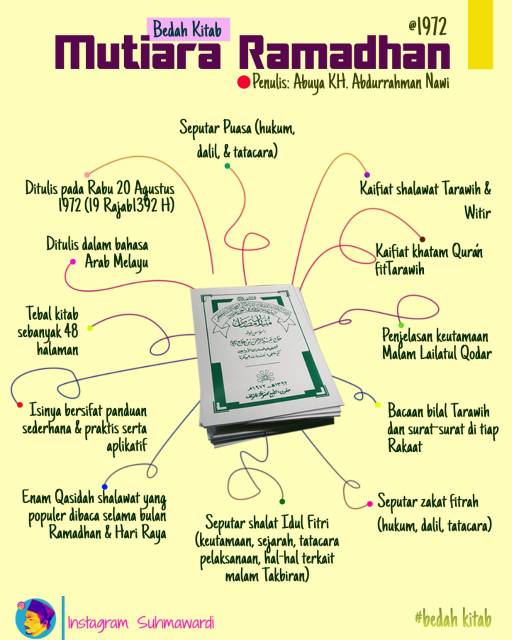 Bedah Kitab
@1972
Mutiara Ramadhan
Penulis: Abuya KH. Abdurrahman Nawi
Seputar Puasa (hukum,
dalil, & tatacara)
Ditulis pada Rabu 20 Agustus
1972 (19 Rajab1392 H)
Kaifiat shalawat Tarawih &
Witir
Ditulis dalam bahasa
Arab Melayu
Kaifiat khatam Qurán
fitTarawih
Tebal kitab
sebanyak 48
halaman
Penjelasan keutamaan
Malam Lailatul Qodar
Isinya bersifat panduan
sederhana & praktis serta
aplikatif
Bacaan bilal Tarawih
dan surat-surat di tiap
Rakaat
Enam Qasidah shalawat yang
populer dibaca selama bulan
Ramadhan & Hari Raya
Seputar shalat Idul Fitri
(keutamaan, sejarah, tatacara
pelaksanaan, hal-hal terkait
malam Takbiran)
Seputar zakat fitrah
(hukum, dalil, tatacara)
Instagram Suhmawardi
#bedah kitab